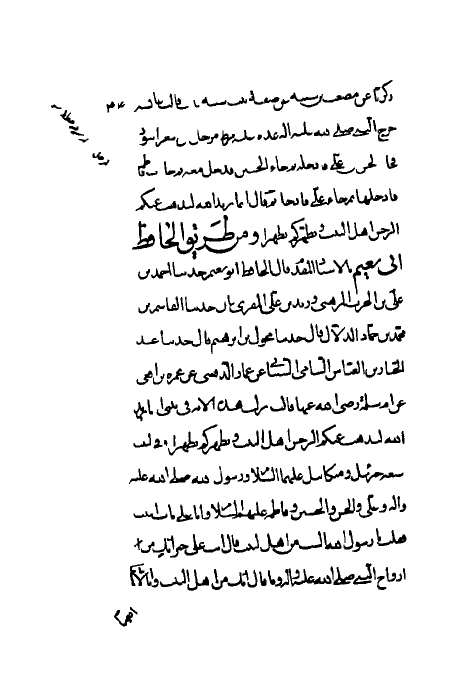 ذكريا عن مصعب بن شيبة عن صفية بنت شيبة قالت قالت عايشه
خرج النبي صلى الله عليه واله غداة وعليه مرط مرحل من شعر اسود
فجا الحسن بن علي فادخله ثم جاء الحسين فدخل معه ثم جات فاطمة
فادخلها ثم جاء علي فادخله ثم قال انما يريد الله ليذهب عنكم
الرجس اهل البيت ويطهركم تطهيرا ومن طريق الحافظ
ابي نعيم بالاسناد المقدم قال الحافظ ابو نعيم حدثنا احمد بن
علي بن المقرى قال حدثنا القاسم بن
محمد بن حماد الدلال قال حدثنا مخول بن ابرهيم قال حدثنا عبد
الجبار بن العباس الشامي عن عمار الدهني عن عمره بنت افعى
عن ام سلمة رضي الله عنها قالت نزلت هذه الايه في بيتي انما يريد
الله ليذهب عنكم الرجس اهل البيت ويطهركم تطهيرا وفي البيت
سبعه جبرئيل وميكائيل عليهما السلام ورسول الله صلى الله عليه
واله وعلي والحسن والحسين وفاطمه عليهم السلام وانا على باب البيت
فقلت يا رسول الله الست من اهل البيت قال انت على خير انك من
ازواج النبي صلى الله عليه واله وما قال انك من اهل البيت